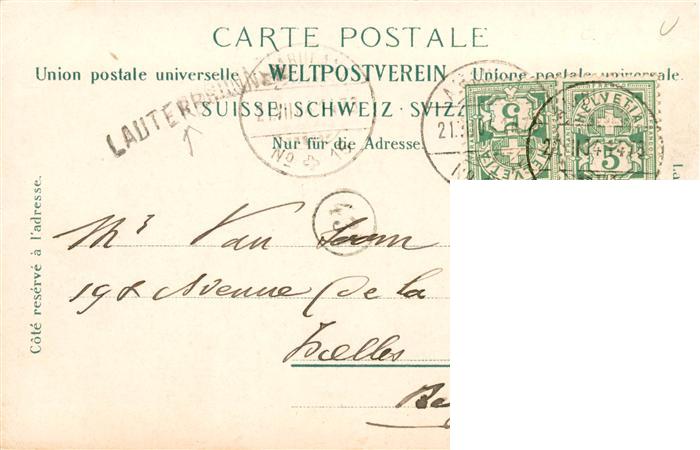 CARTE POSTALE
Union postale universelle WELTPOSTVEREIN Unione postale universale.
LAUTERBRUNNEN
SUISSE · SCHWEIZ · SVIZZ
Nur für die Adresse
No 1
5 HELVETIA
HELVETIA 5
Côté reservé à l'adresse.
Mrs Van
198 Avenue De la
Ixelles
Be